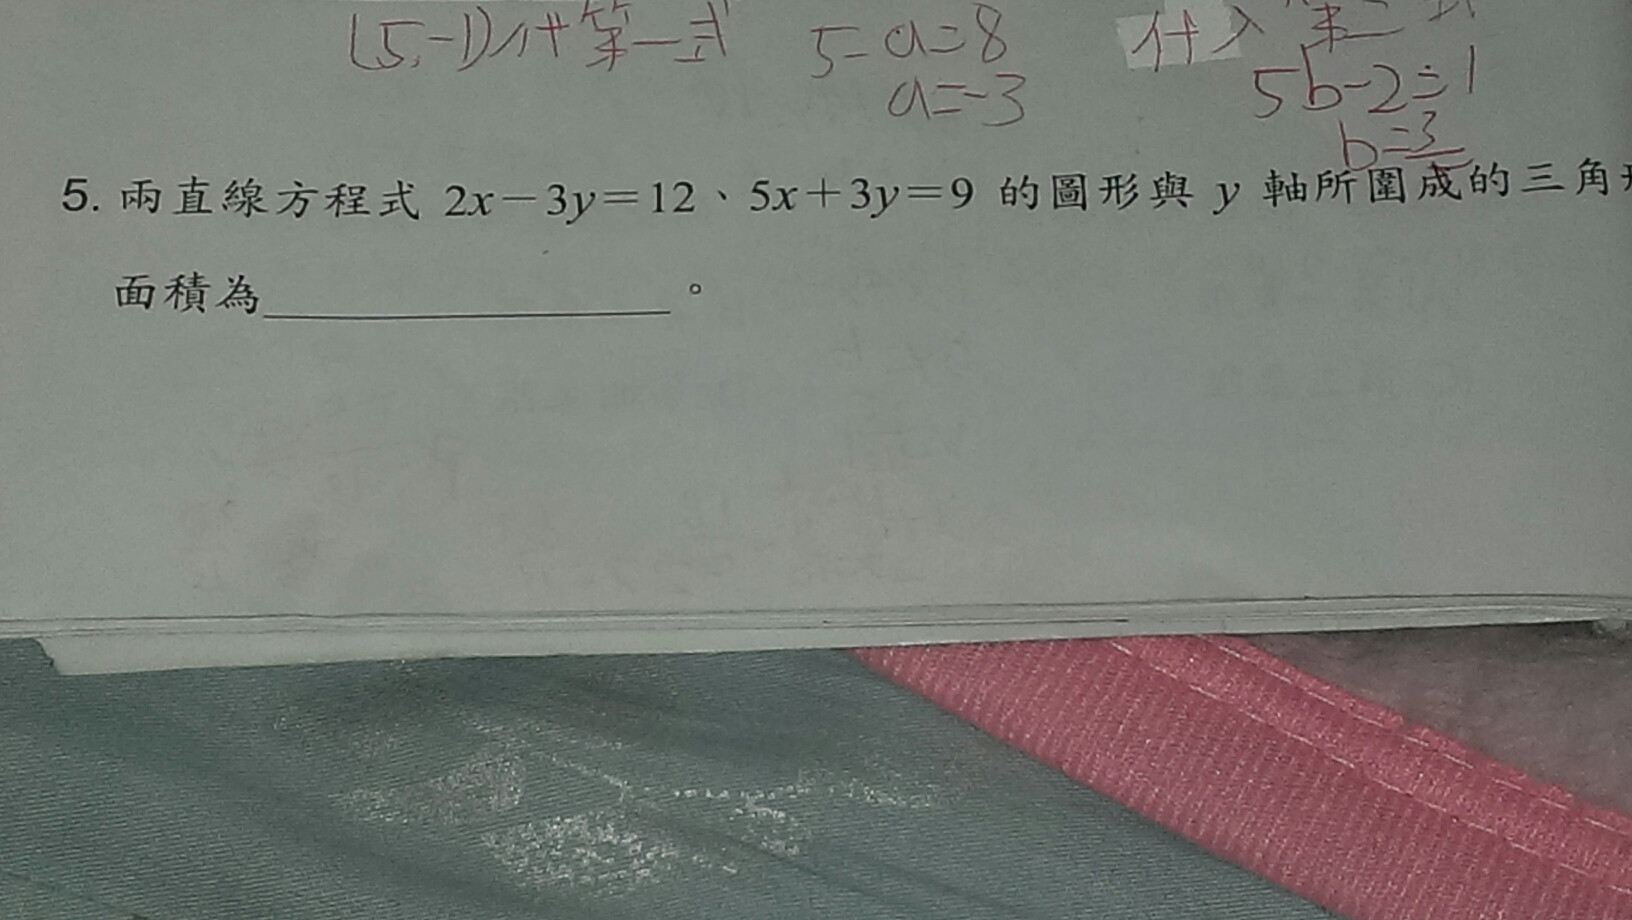 (5,-1)代第一式 5-a=8 代入第二式
a=-3 5b-2=1
b=3
5. 兩直線方程式 2x-3y=12、5x+3y=9 的圖形與 y 軸所圍成的三角
面積為____________。